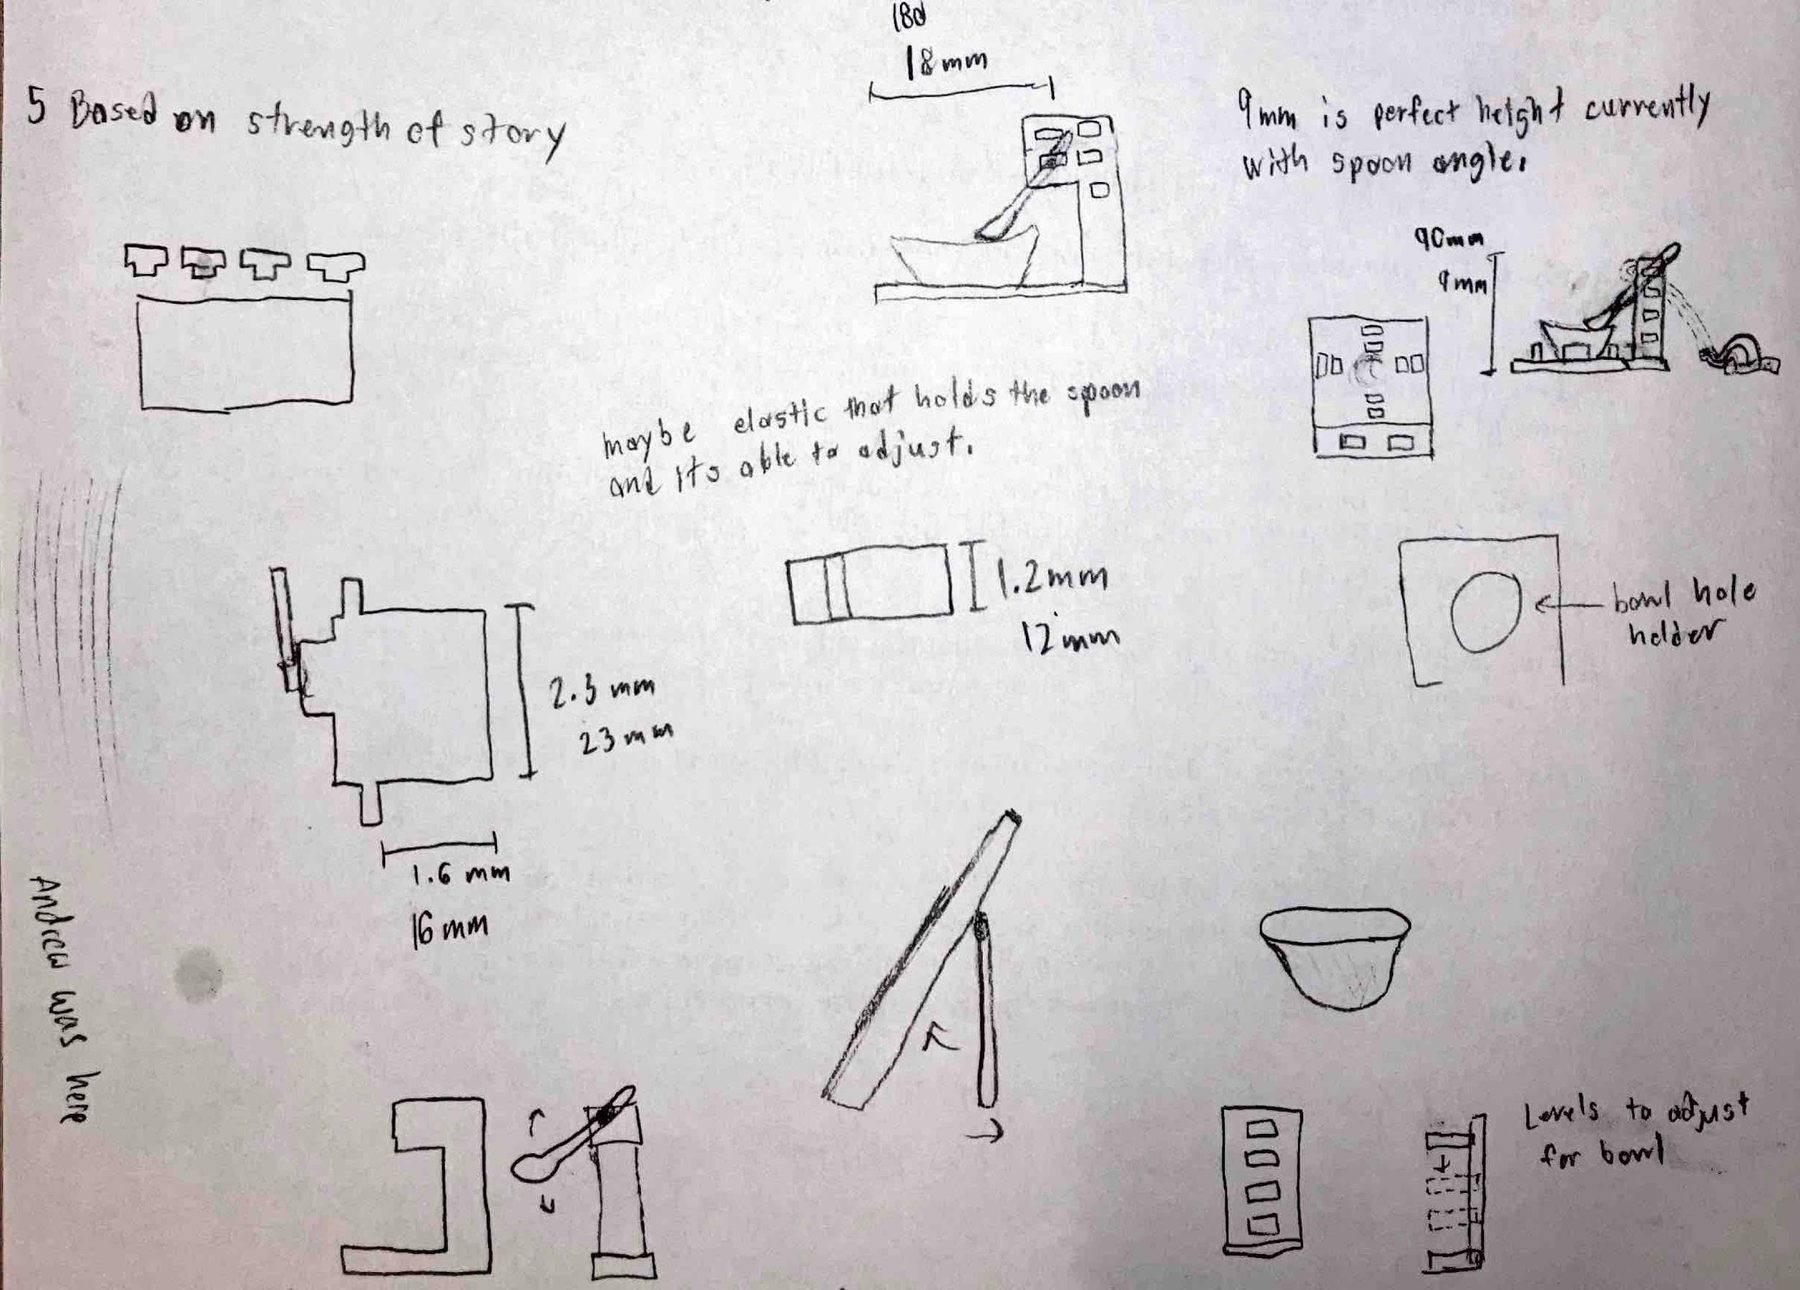 180
18mm
5 Based on strength of story
9mm is perfect height currently
with spoon angle.
90mm
9mm
maybe elastic that holds the spoon
and its able to adjust.
1.2mm
12mm
bowl hole
holder
2.3 mm
23mm
1.6 mm
16mm
Andrew was here
Levels to adjust
for bowl